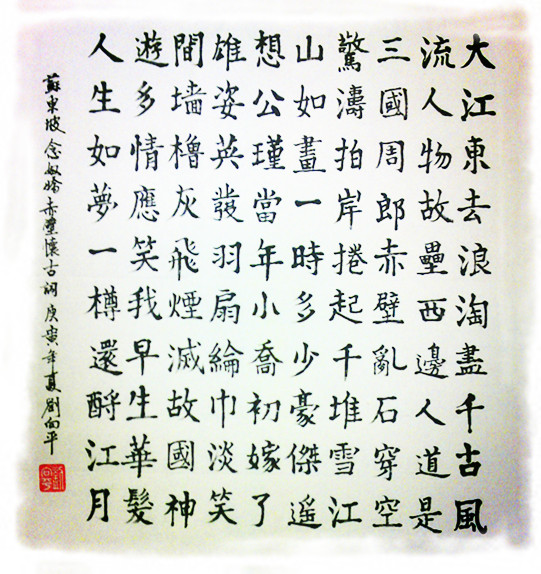 大江東去浪淘盡千古風
流人物故壘西邊人道是
三國周郎赤壁亂石穿空
驚濤拍岸捲起千堆雪江
山如畫一時多少豪傑遙
想公瑾當年小喬初嫁了
雄姿英發羽扇綸巾淡笑
間墻櫓灰飛煙滅故國神
遊多情應笑我早生華髮
人生如夢一樽還酹江月
蘇東坡念奴嬌赤壁懷古詞庚寅年夏劉向平